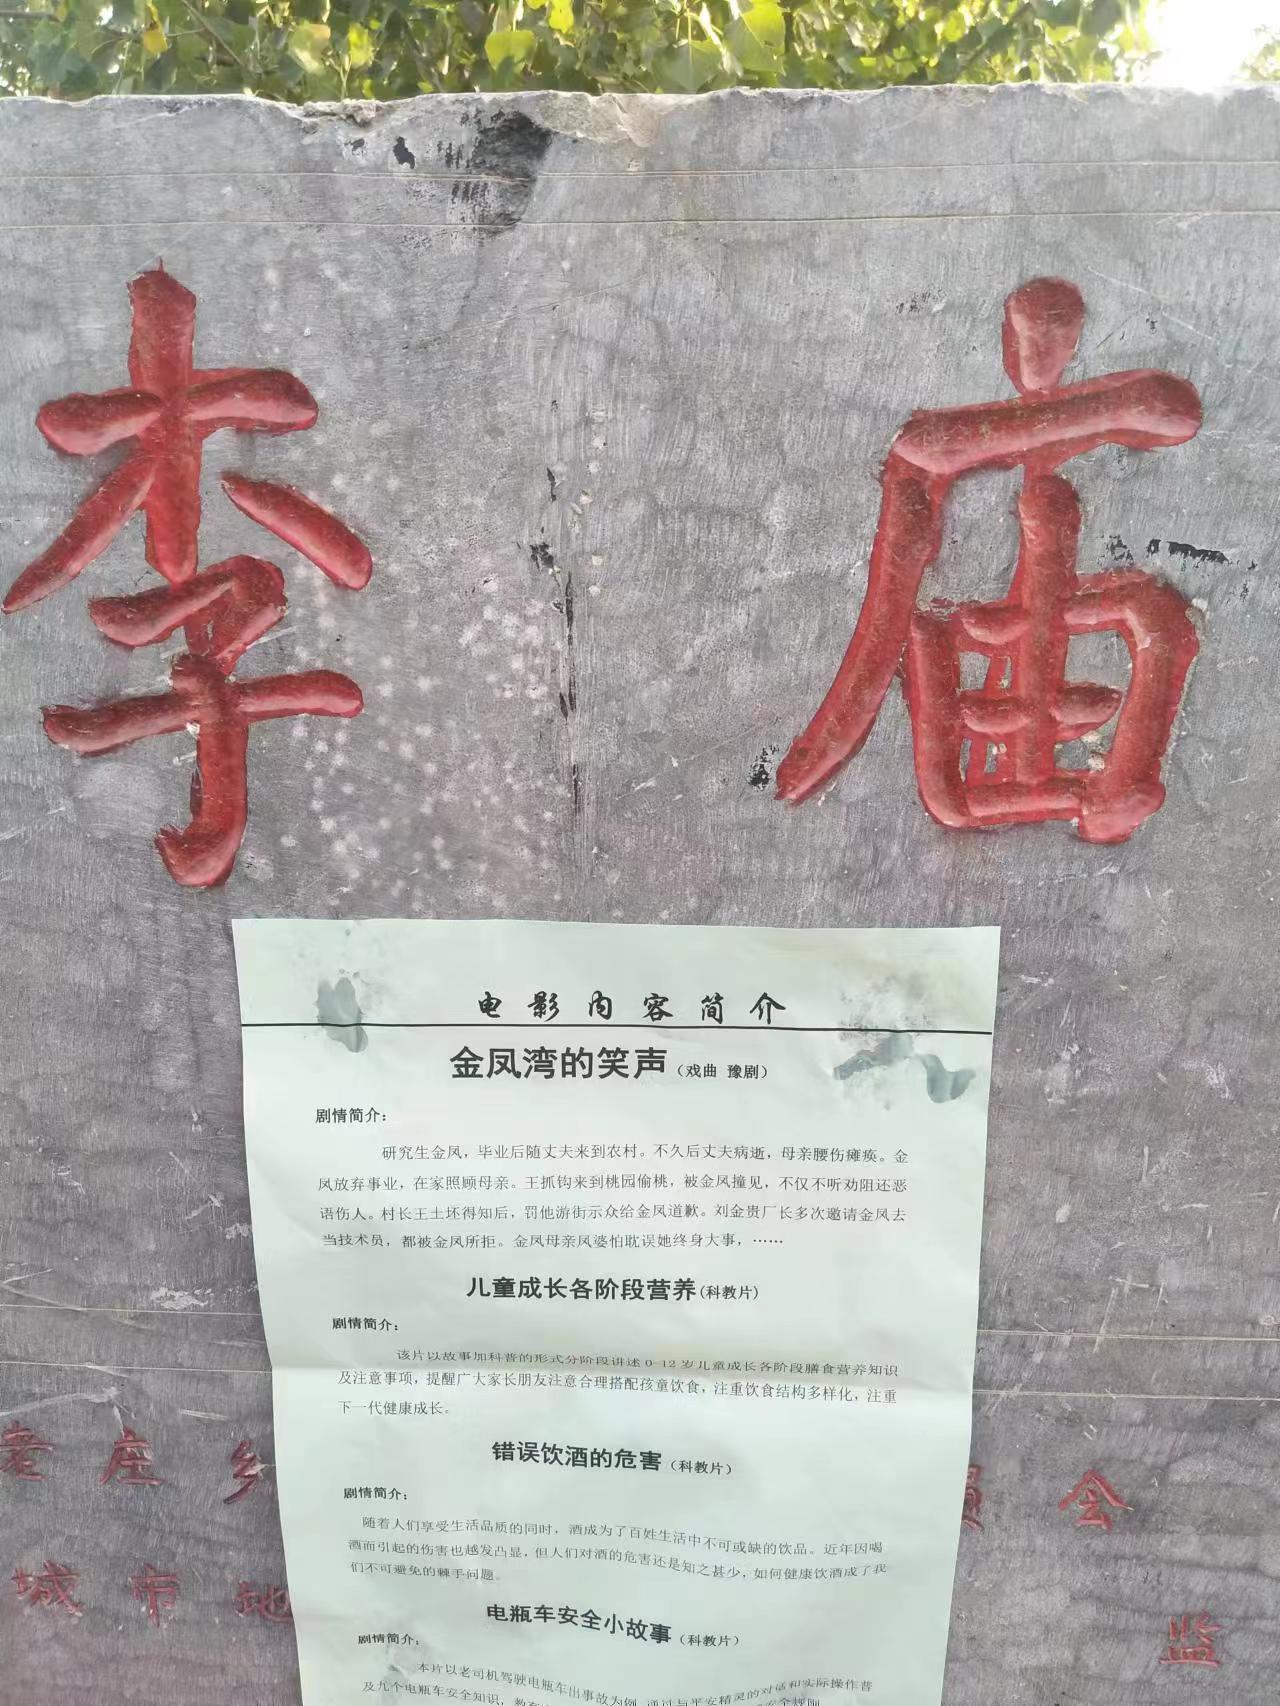 李庙
电影内容简介
金凤湾的笑声(戏曲 豫剧)
剧情简介:
研究生金凤，毕业后随丈夫来到农村。不久后丈夫病逝，母亲腰伤瘫痪。金
凤放弃事业，在家照顾母亲。王抓钩来到桃园偷桃，被金凤撞见，不仅不听劝阻还恶
语伤人。村长王土坯得知后，罚他游街示众给金凤道歉。刘金贵厂长多次邀请金凤去
当技术员，都被金凤所拒。金凤母亲凤婆怕耽误她终身大事，……
儿童成长各阶段营养(科教片)
剧情简介:
该片以故事加科普的形式分阶段讲述0-12岁儿童成长各阶段膳食营养知识
及注意事项，提醒广大家长朋友注意合理搭配孩童饮食，注重饮食结构多样化，注重
下一代健康成长。
错误饮酒的危害(科教片)
剧情简介:
随着人们享受生活品质的同时，酒成为了百姓生活中不可或缺的饮品。近年因喝
酒而引起的伤害也越发凸显，但人们对酒的危害还是知之甚少，如何健康饮酒成了我
们不可避免的棘手问题。
电瓶车安全小故事(科教片)
剧情简介:
本片以老司机驾驶电瓶车出事故为例，通过与平安精灵的对话和实际操作普
及九个电瓶车安全知识，教育 安全规则
老庄乡 员会
城市地 监